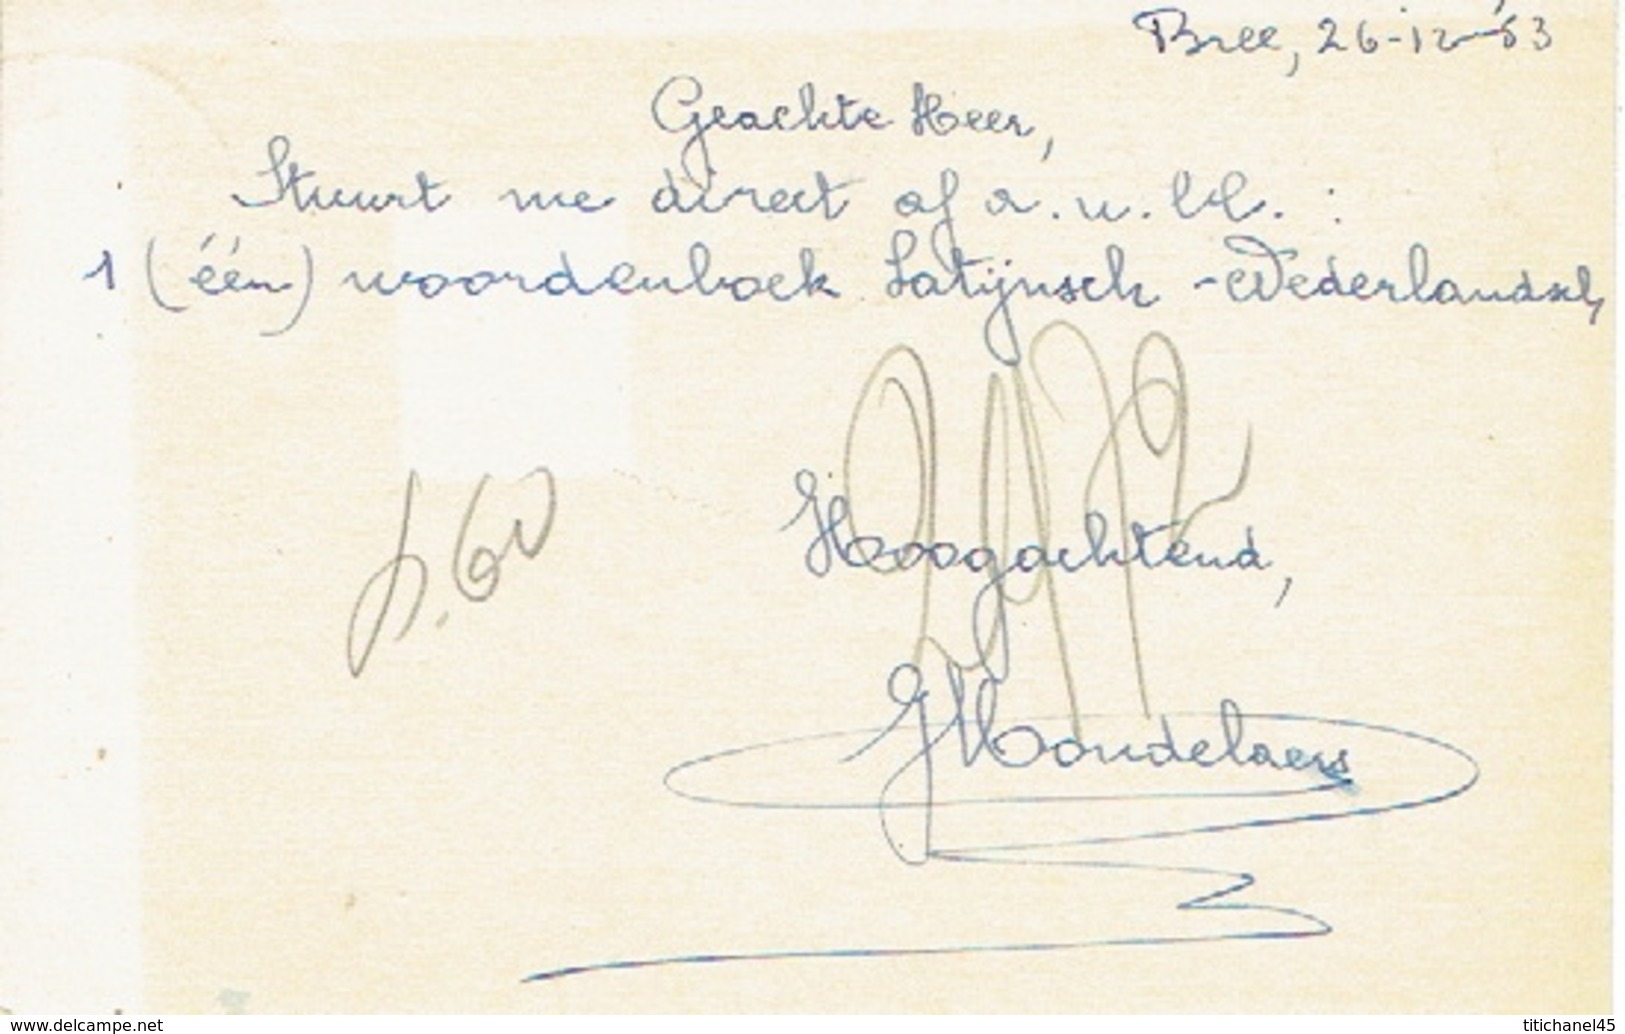 Bree, 26-12-53
Geachte Heer,
Stuurt me direct af a.u.bl. :
1 (één) woordenboek Latijnsch - Nederlandsch
Hoogachtend,
GHoudelaers
www.delcampe.net
titichanel45